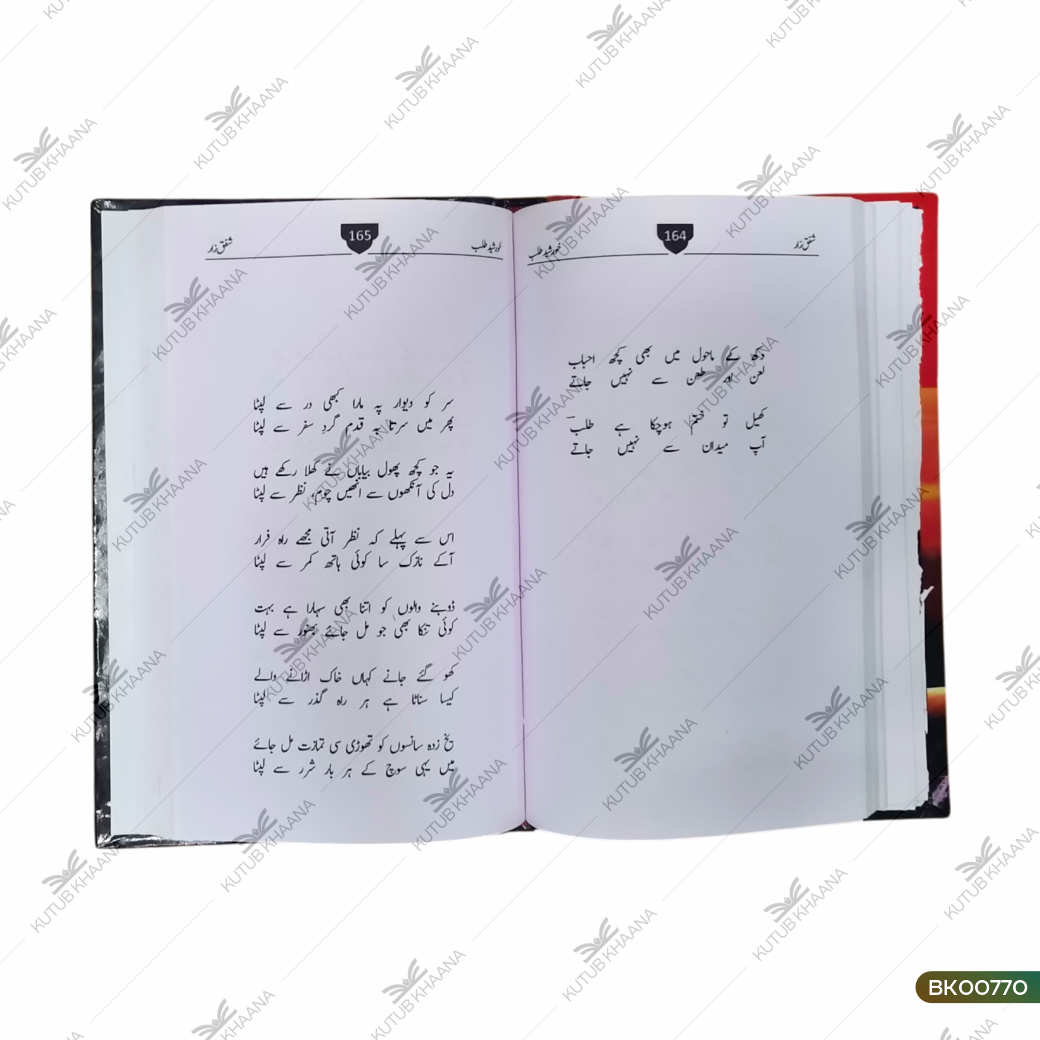 شفق زار
164
خورشید طلب
دکھ کے ماحول میں بھی کچھ احباب
لعن اور طعن سے نہیں جاتے
کھیل تو ختم ہوچکا ہے طلبؔ
آپ میدان سے نہیں جاتے
خورشید طلب
165
شفق زار
سر کو دیوار پہ مارا کبھی در سے لپٹا
پھر میں سرتا بہ قدم گردِ سفر سے لپٹا
یہ جو کچھ پھول بیاباں نے کھلا رکھے ہیں
دل کی آنکھوں سے انھیں چوم، نظر سے لپٹا
اس سے پہلے کہ نظر آتی مجھے راہ فرار
آکے نازک سا کوئی ہاتھ کمر سے لپٹا
ڈوبنے والوں کو اتنا بھی سہارا ہے بہت
کوئی تنکا بھی جو مل جائے بھنور سے لپٹا
کھو گئے جانے کہاں خاک اڑانے والے
کیسا سناٹا ہے ہر راہ گذر سے لپٹا
یخ زدہ سانسوں کو تھوڑی سی تمازت مل جائے
میں یہی سوچ کے ہر بار شرر سے لپٹا
KUTUB KHAANA
BK00770